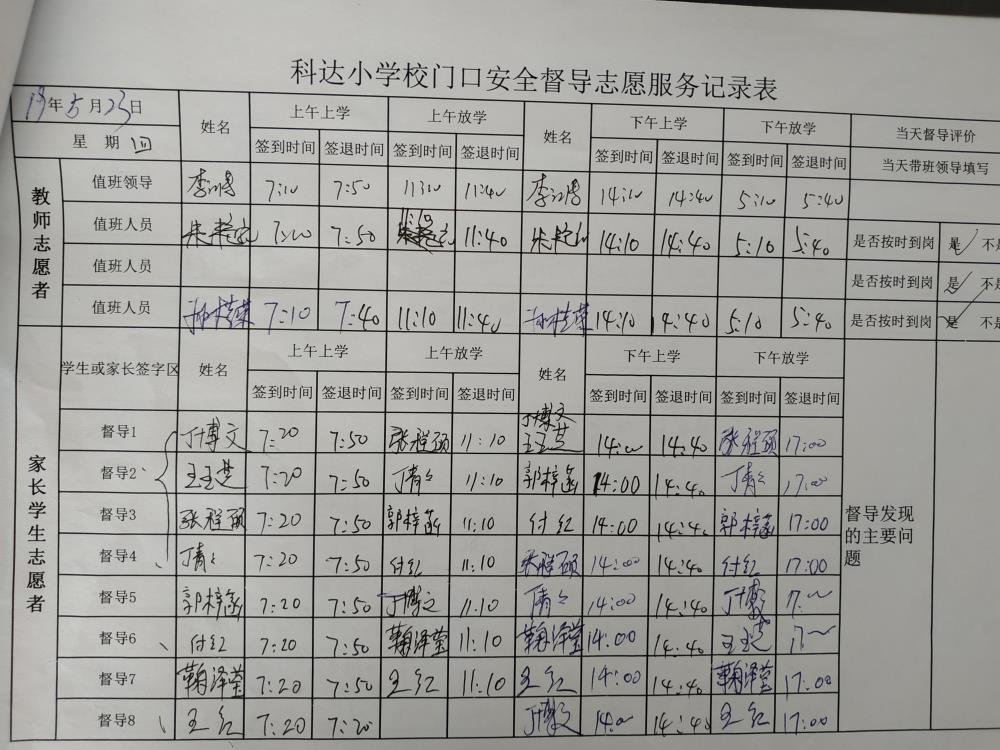 科达小学校门口安全督导志愿服务记录表
19年5月23日 姓名 上午上学 上午放学 姓名 下午上学 下午放学 当天督导评价
星 期 四 签到时间 签退时间 签到时间 签退时间 签到时间 签退时间 签到时间 签退时间 当天带班领导填写
教师志愿者
值班领导 7:10 7:50 11:10 11:40 14:10 14:40 5:10 5:40
值班人员 7:10 7:50 11:10 11:40 14:10 14:40 5:10 5:40 是否按时到岗 是 不是
值班人员 是否按时到岗 是 不是
值班人员 孙桂荣 7:10 7:40 11:10 11:40 孙桂荣 14:10 14:40 5:10 5:40 是否按时到岗 是 不是
家长学生志愿者
学生或家长签字区 姓名 上午上学 上午放学 姓名 下午上学 下午放学
签到时间 签退时间 签到时间 签退时间 签到时间 签退时间 签到时间 签退时间
督导1 丁博文 7:20 7:50 张程硕 11:10 丁博文 王玉芝 14:00 14:40 张程硕 17:00
督导2 王玉芝 7:20 7:50 丁倩倩 11:10 郭梓菡 14:00 14:40 丁倩倩 17:00
督导3 张程硕 7:20 7:50 郭梓菡 11:10 付红 14:00 14:40 郭梓菡 17:00
督导4 丁倩倩 7:20 7:50 付红 11:10 张程硕 14:00 14:40 付红 17:00
督导5 郭梓菡 7:20 7:50 丁博文 11:10 丁倩倩 14:00 14:40 丁博文
督导6 付红 7:20 7:50 鞠泽莹 11:10 鞠泽莹 14:00 14:40 王玉芝
督导7 鞠泽莹 7:20 7:50 王红 11:10 王红 14:00 14:40 鞠泽莹 17:00
督导8 王红 7:20 7:20 丁博文 14:00 14:40 王红 17:00
督导发现
的主要问
题